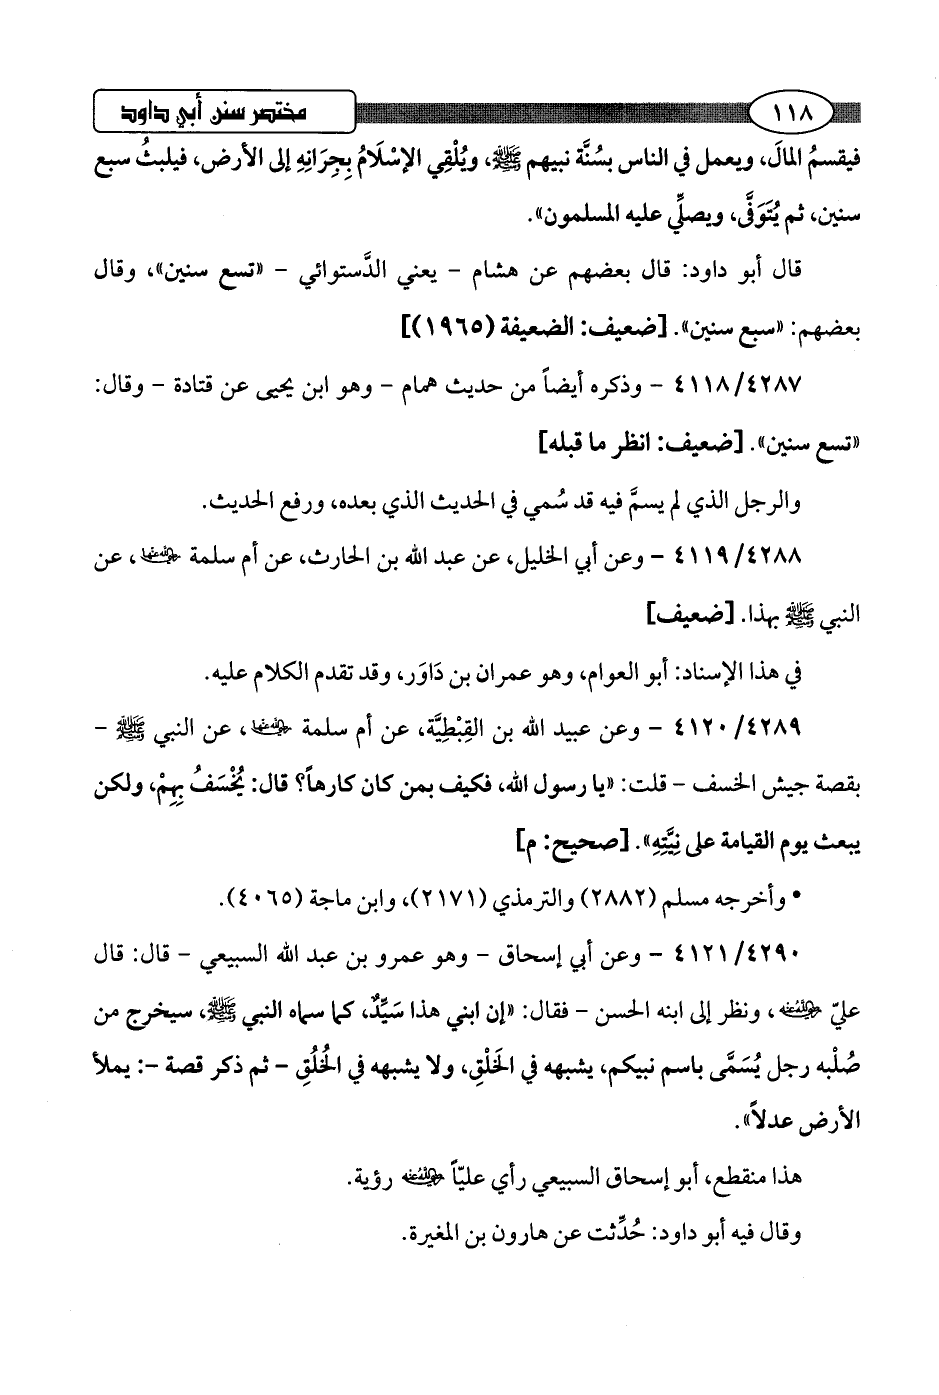 ١١٨
مختصر سنن أبي داود
فيقسمُ المالَ، ويعمل في الناس بسُنَّة نبيهم ﷺ، ويُلْقِي الإسْلَامُ بِجِرَانِهِ إلى الأرض، فيلبثُ سبع
سنين، ثم يُتَوَفَّى، ويصلِّي عليه المسلمون».
قال أبو داود: قال بعضهم عن هشام – يعني الدَّستوائي – «تسع سنين»، وقال
بعضهم: «سبع سنين». [ضعيف: الضعيفة (١٩٦٥)]
٤١١٨/٤٢٨٧ – وذكره أيضاً من حديث همام – وهو ابن يحيى عن قتادة – وقال:
«تسع سنين». [ضعيف: انظر ما قبله]
والرجل الذي لم يسمَّ فيه قد سُمي في الحديث الذي بعده، ورفع الحديث.
٤١١٩/٤٢٨٨ – وعن أبي الخليل، عن عبد الله بن الحارث، عن أم سلمة رضي الله عنها، عن
النبي ﷺ بهذا. [ضعيف]
في هذا الإسناد: أبو العوام، وهو عمران بن دَاوَر، وقد تقدم الكلام عليه.
٤١٢٠/٤٢٨٩ – وعن عبيد الله بن القِبْطِيَّة، عن أم سلمة رضي الله عنها، عن النبي ﷺ –
بقصة جيش الخسف – قلت: «يا رسول الله، فكيف بمن كان كارهاً؟ قال: يُخْسَفُ بِهِمْ، ولكن
يبعث يوم القيامة على نِيَّتِهِ». [صحيح: م]
• وأخرجه مسلم (٢٨٨٢) والترمذي (٢١٧١)، وابن ماجة (٤٠٦٥).
٤١٢١/٤٢٩٠ – وعن أبي إسحاق – وهو عمرو بن عبد الله السبيعي – قال: قال
عليّ رضي الله عنه، ونظر إلى ابنه الحسن – فقال: «إن ابني هذا سَيِّدٌ، كما سماه النبي ﷺ، سيخرج من
صُلْبه رجل يُسَمَّى باسم نبيكم، يشبهه في الخَلْقِ، ولا يشبهه في الخُلُقِ – ثم ذكر قصة –: يملأ
الأرض عدلاً».
هذا منقطع، أبو إسحاق السبيعي رأي عليّاً رضي الله عنه رؤية.
وقال فيه أبو داود: حُدِّثت عن هارون بن المغيرة.